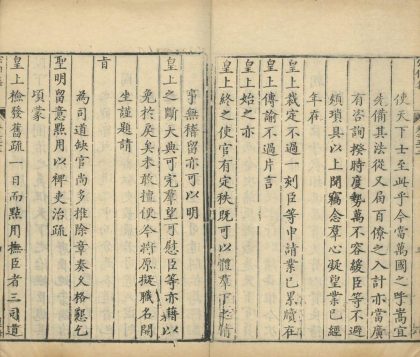 使天下安至此乎今當萬國之呼嵩宜
先備其法從又扃百僚之入計亦當廣
有咨詢揆時度勢萬不容緩臣等不避
煩瑣具以上聞竊念羣心凝望業已經
年在
皇上裁定不過一刻臣等申請業已累牘在
皇上傳諭不過片言
皇上始之亦
皇上終之使官有定秩既可以體羣下之情
事無稽留亦可以明
皇上之斷大典可完羣望可慰臣等亦藉以
免於戾矣未敢擅便今將原擬職名開
坐謹題請
旨
為司道缺官尚多推除章奏久格懇乞
聖明留意點用以稗吏治疏
項蒙
皇上檢發舊疏一日而點用撫臣者三司道